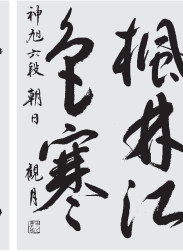 楓林江
色寒
神旭六段 朝日 觀月